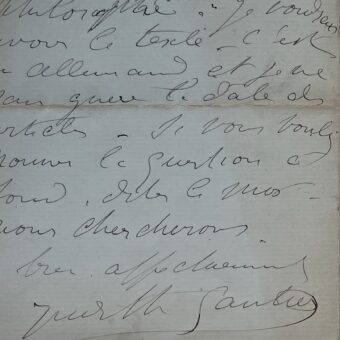 philosophie. je voudrais
avoir le texte - c'est
en allemand et je ne
sais guère la date des
articles - Si vous voulez
trouver la question à
fond, dites le mot -
nous chercherons
bien affectueusement
Judith Gautier